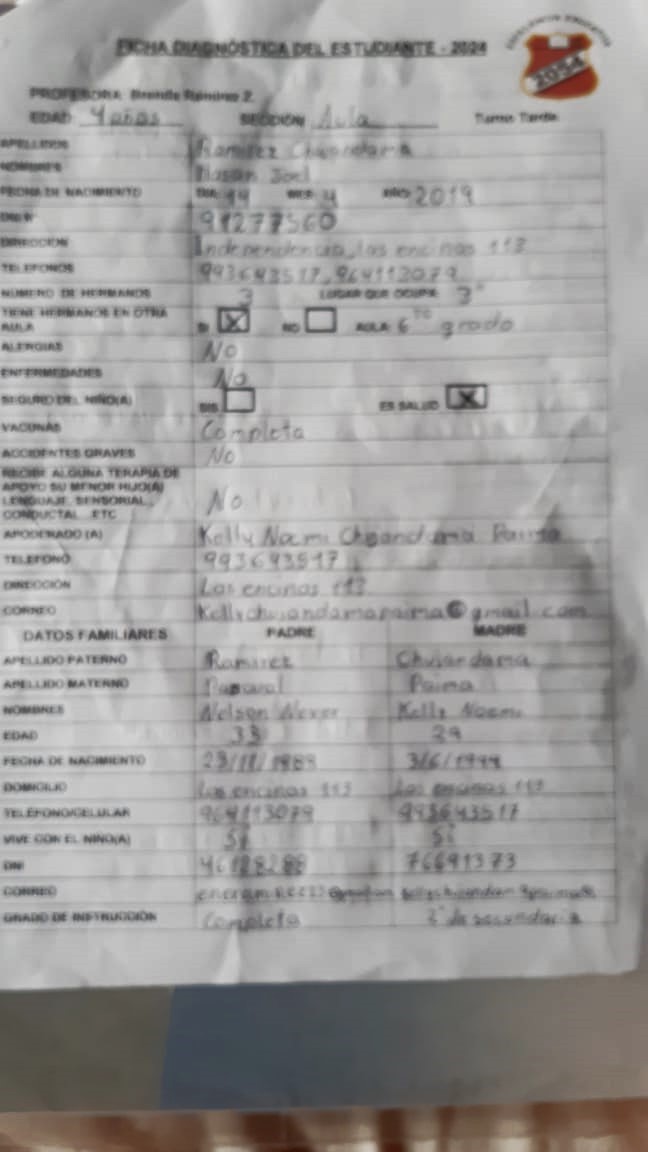 FICHA DIAGNÓSTICA DEL ESTUDIANTE - 2024
2054
PROFESORA: Brenda Ramirez Z.
EDAD 4 años SECCIÓN Aula Turno Tarde
APELLIDOS Ramirez Chujandama
NOMBRES Joel
FECHA DE NACIMIENTO DIA: 14 MES: 4 AÑO: 2019
DNI N°
DIRECCIÓN Independencia, las encinas 113
TELÉFONOS 993643517, 964113079
NÚMERO DE HERMANOS 3 LUGAR QUE OCUPA: 3°
TIENE HERMANOS EN OTRA AULA SI X NO AULA: 6TO grado
ALERGIAS No
ENFERMEDADES No
SEGURO DEL NIÑO(A) SIS ES SALUD X
VACUNAS Completa
ACCIDENTES GRAVES No
RECIBE ALGUNA TERAPIA DE
APOYO SU MENOR HIJO(A)
LENGUAJE, SENSORIAL,
CONDUCTAL, ETC No
APODERADO (A) Kelly Noemi Chujandama Paima
TELÉFONO 993643517
DIRECCIÓN Las encinas 113
CORREO Kellychujandamapaima@gmail.com
DATOS FAMILIARES PADRE MADRE
APELLIDO PATERNO Ramirez Chujandama
APELLIDO MATERNO Paima
NOMBRES Nelson Kelly Noemi
EDAD 29
FECHA DE NACIMIENTO
DOMICILIO Las encinas 113 Las encinas 113
TELÉFONO/CELULAR 964113079 993643517
VIVE CON EL NIÑO(A) Si Si
DNI 46128288 76691373
CORREO
GRADO DE INSTRUCCIÓN Completa de secundaria